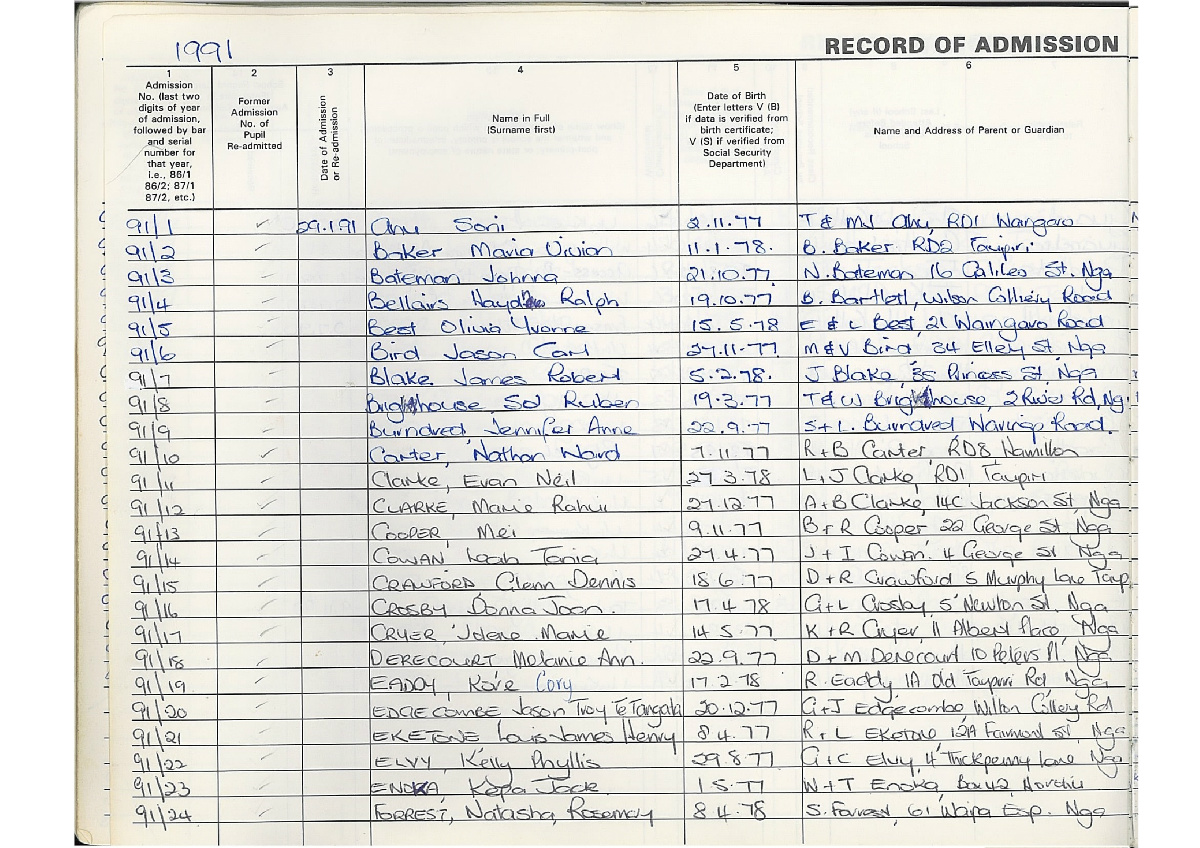 1991
RECORD OF ADMISSION
1 2 3 4 5 6
Admission No. (last two digits of year of admission, followed by bar and serial number for that year, i.e., 86/1 86/2; 87/1 87/2, etc.)
Former Admission No. of Pupil Re-admitted
Date of Admission or Re-admission
Name in Full (Surname first)
Date of Birth (Enter letters V (B) if data is verified from birth certificate; V (S) if verified from Social Security Department)
Name and Address of Parent or Guardian
91/1 29.1.91 Ahu Soni 2.11.77 T & MJ Ahu, RD1 Waingaro
91/2 Baker Maria Vivian 11.1.78. B. Baker RD2 Taupiri
91/3 Bateman Johnna 21.10.77 N. Bateman 16 Galileo St. Nga
91/4 Bellairs Ralph 19.10.77 B. Bartlett, Wilson Colliery Road
91/5 Best Olivia Yvonne 15.5.78 E & L Best, 21 Waingaro Road
91/6 Bird Jason Carl 27.11.77 M & V Bird 34 Ellery St. Nga
91/7 Blake James Robert 5.2.78. J Blake, 35 Princess St. Nga
91/8 Brighouse, Sol Ruben 19.3.77 T & W Brighouse, 2 Rd, Ng
91/9 Burndred, Jennifer Anne 22.9.77 S + L. Burndred Road.
91/10 Carter, Nathan Ward 7.11.77 R + B Carter, RD8 Hamilton
91/11 Clarke, Evan Neil 27 3.78 L, J Clarke, RD1, Taupiri
91/12 CLARKE, Marie Rahui 27.12.77 A + B Clarke, 14C Jackson St, Nga
91/13 COOPER, Mei 9.11.77 B + R Cooper 22 George St, Nga
91/14 COWAN Leah Tania 27.4.77 J + I Cowan. 4 George St Nga
91/15 CRAWFORD, Glenn Dennis 18 6.77 D + R Crawford 5 Murphy Lane Taup
91/16 CROSBY Donna Joan. 17.4 78 G + L Crosby, 5 Newton St. Nga
91/17 CRYER, Jolene Marie 14 5.77. K + R Cryer, 11 Albert Place, Nga
91/18 DERECOURT Melanie Ann. 22.9.77 D + M Derecourt 10 Peters Pl. Nga
91/19 EADDY, Cory 17.2.78 R. Eaddy 1A Old Taupiri Rd, Nga
91/20 EDGECOMBE Jason Troy Te Tangata 20.12.77 G + J Edgecombe, Wilton Colliery Rd
91/21 EKETONE Louis James Henry 8 4.77 R + L EKETONE 12A St, Nga
91/22 ELVY, Kelly Phyllis 29.8.77 G + C Elvy, 4 Thickpenny Lane Nga
91/23 ENOKA Kepa Jade 1.5.77 W + T Enoka, Box 42,
91/24 FORREST, Natasha, Rosemary 8 4.78 S. Forrest, 61 Waipa Esp. Nga